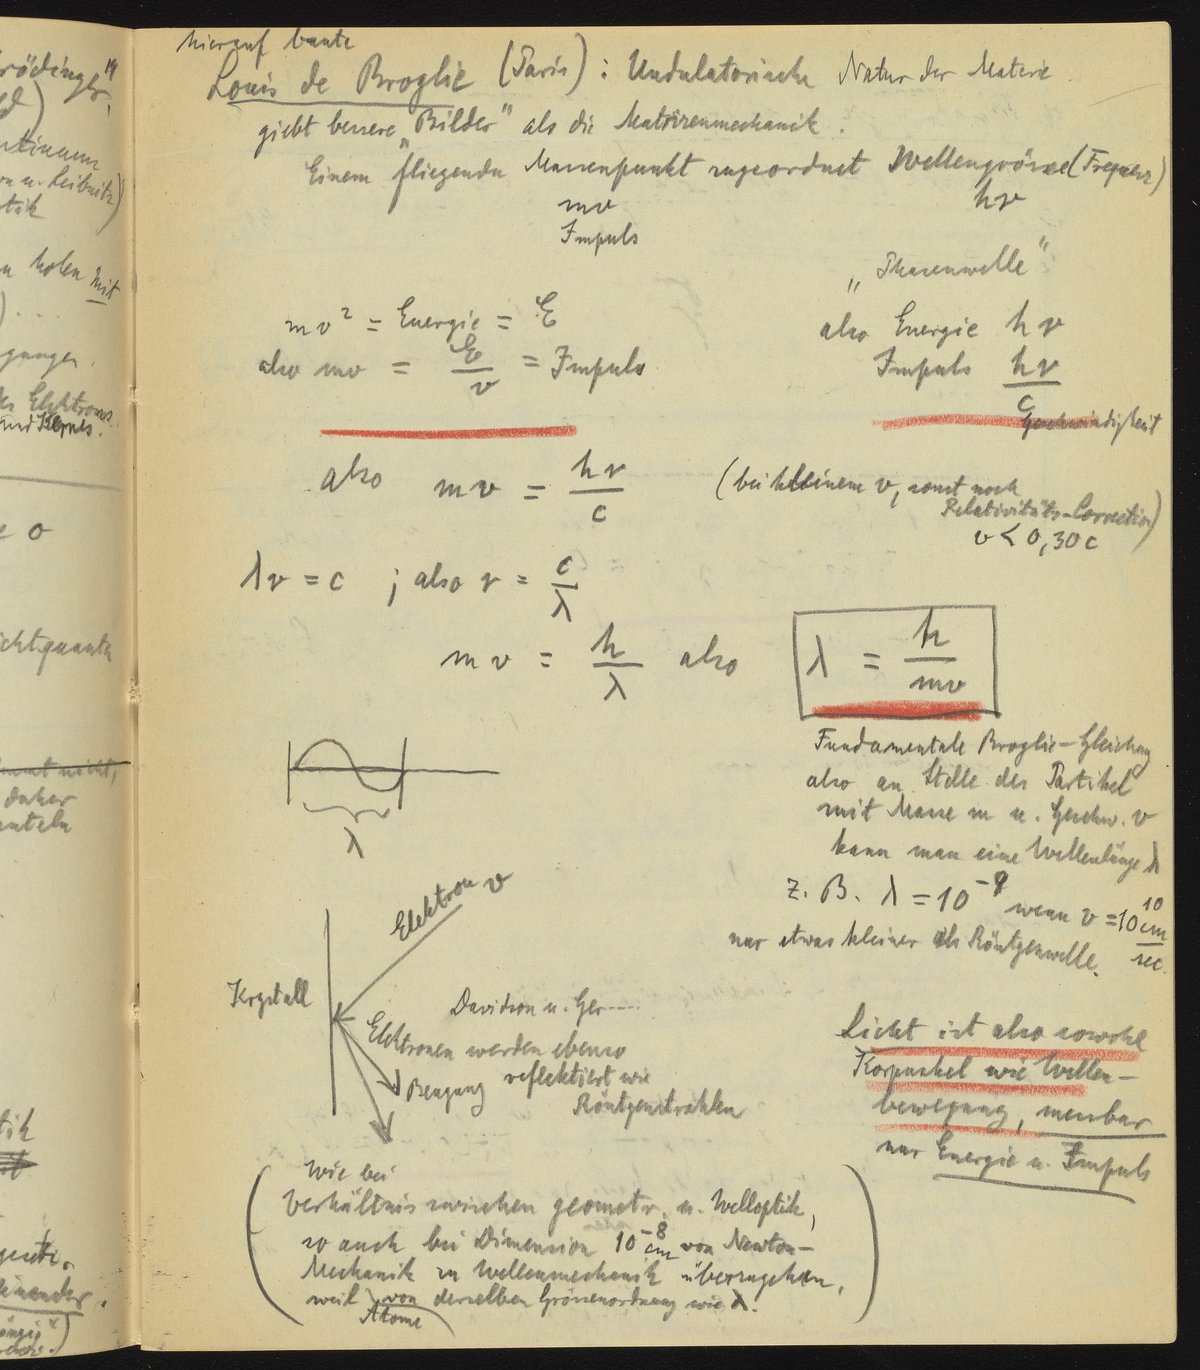 rödinger"
ntinuum
u. Leibnitz)
tik
n holen mit
gungen.
des Elektrons
und Kernes.
e 0
ichtquanten
kommt nicht,
daher
anteln
tik
einander.
hierauf baute
Louis de Broglie (Paris): Undulatorische Natur der Materie
giebt bessere „Bilder" als die Matrizenmechanik.
Einem fliegenden Massenpunkt zugeordnet Wellengrösse (Frequenz)
mv hν
Impuls
„Phasenwelle"
mv² = Energie = E also Energie hν
also mv = E/v = Impuls Impuls hν/c
Geschwindigkeit
also mv = hν/c (bei kleinem v, sonst noch
Relativitäts-Correction)
v < 0,30c
λν = c ; also ν = c/λ
mv = h/λ also λ = h/mv
Fundamentale Broglie-Gleichung
also an Stelle des Partikel
mit Masse m u. Geschw. v
kann man eine Wellenlänge λ
λ
z. B. λ = 10⁻⁹ wenn v = 10¹⁰ cm/sec.
nur etwas kleiner als Röntgenwelle.
Elektron v
Krystall
Davidson u. Ger....
Elektronen werden ebenso
reflektiert wie
Röntgenstrahlen
Beugung
Licht ist also sowohl
Korpuskel wie Wellen-
bewegung, messbar
nur Energie u. Impuls
(Wie bei
Verhältnis zwischen geometr. u. Welloptik,
so auch bei Dimension 10⁻⁸ cm von Newton-
Mechanik zu Wellenmechanik überzugehen,
weil von derselben Grössenordnung wie λ.)
Atome